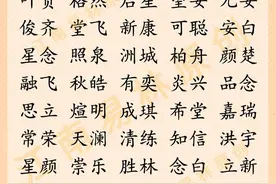 俊齐 堂飞 新康 可聪 安白
星念 照泉 洲城 柏舟 颜楚
融飞 秋皓 有奕 炎兴 品念
思立 煊明 成琪 希堂 嘉瑞
常荣 天澜 清练 知信 洪宇
星颜 崇乐 胜林 念白 立新